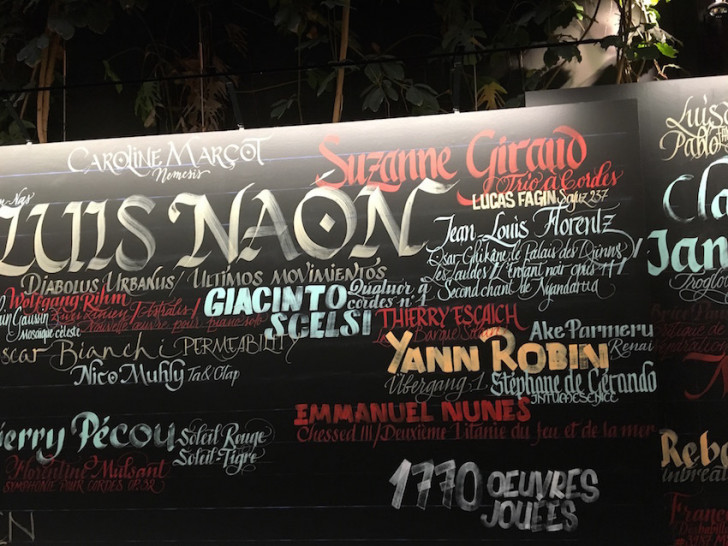 CAROLINE MARÇOT
Nemesis
Suzanne Giraud
Trio à Cordes
LUIS NAÓN
DIABOLUS URBANUS / ULTIMOS MOVIMIENTOS
LUCAS FAGIN
Jean-Louis Florentz
Qsar Ghilâne, le Palais des Djinns /
Les Laudes / L'enfant noir opus 17 /
Second chant de Nyandarua
Wolfgang Rihm
Mosaïque céleste
Nouvelle oeuvre pour piano solo
GIACINTO
SCELSI
Quatuor à
cordes n°4
THIERRY ESCAICH
Oscar Bianchi PERMEABILITY
YANN ROBIN
Übergang 1
Ake Parmeru
Renai
Stéphane de Gérando
INTUMESCENCE
Nico Muhly
EMMANUEL NUNES
Chessed III / Deuxième Litanie du feu et de la mer
ierry Pécou
Soleil Rouge
Soleil-Tigre
Florentine Mulsant
SYMPHONIE POUR CORDES OP. 32
1770 OEUVRES
JOUÉES
Luis
Pablo
Cla
Jan
Troglo
Rebe
Franc
EN